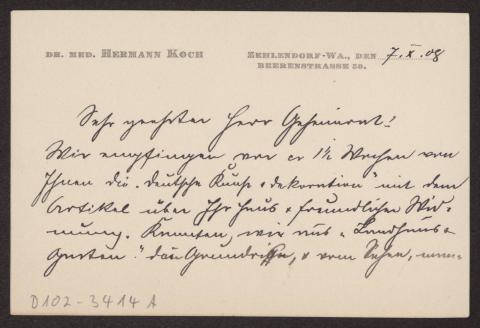 DR. MED. HERMANN KOCH
ZEHLENDORF-WA., DEN 7.X.08
BEERENSTRASSE 50.
Sehr geehrter Herr Geheimrat!
Wir empfingen vor cr 1½ Wochen von
Ihnen die „deutsche Kunst & dekoration" mit dem
Artikel über Ihr Haus & freundlicher Wid-
mung. Kannten wir aus „Landhaus &
Garten" die Grundrisse, & vom Sehen,
D102-3414 A